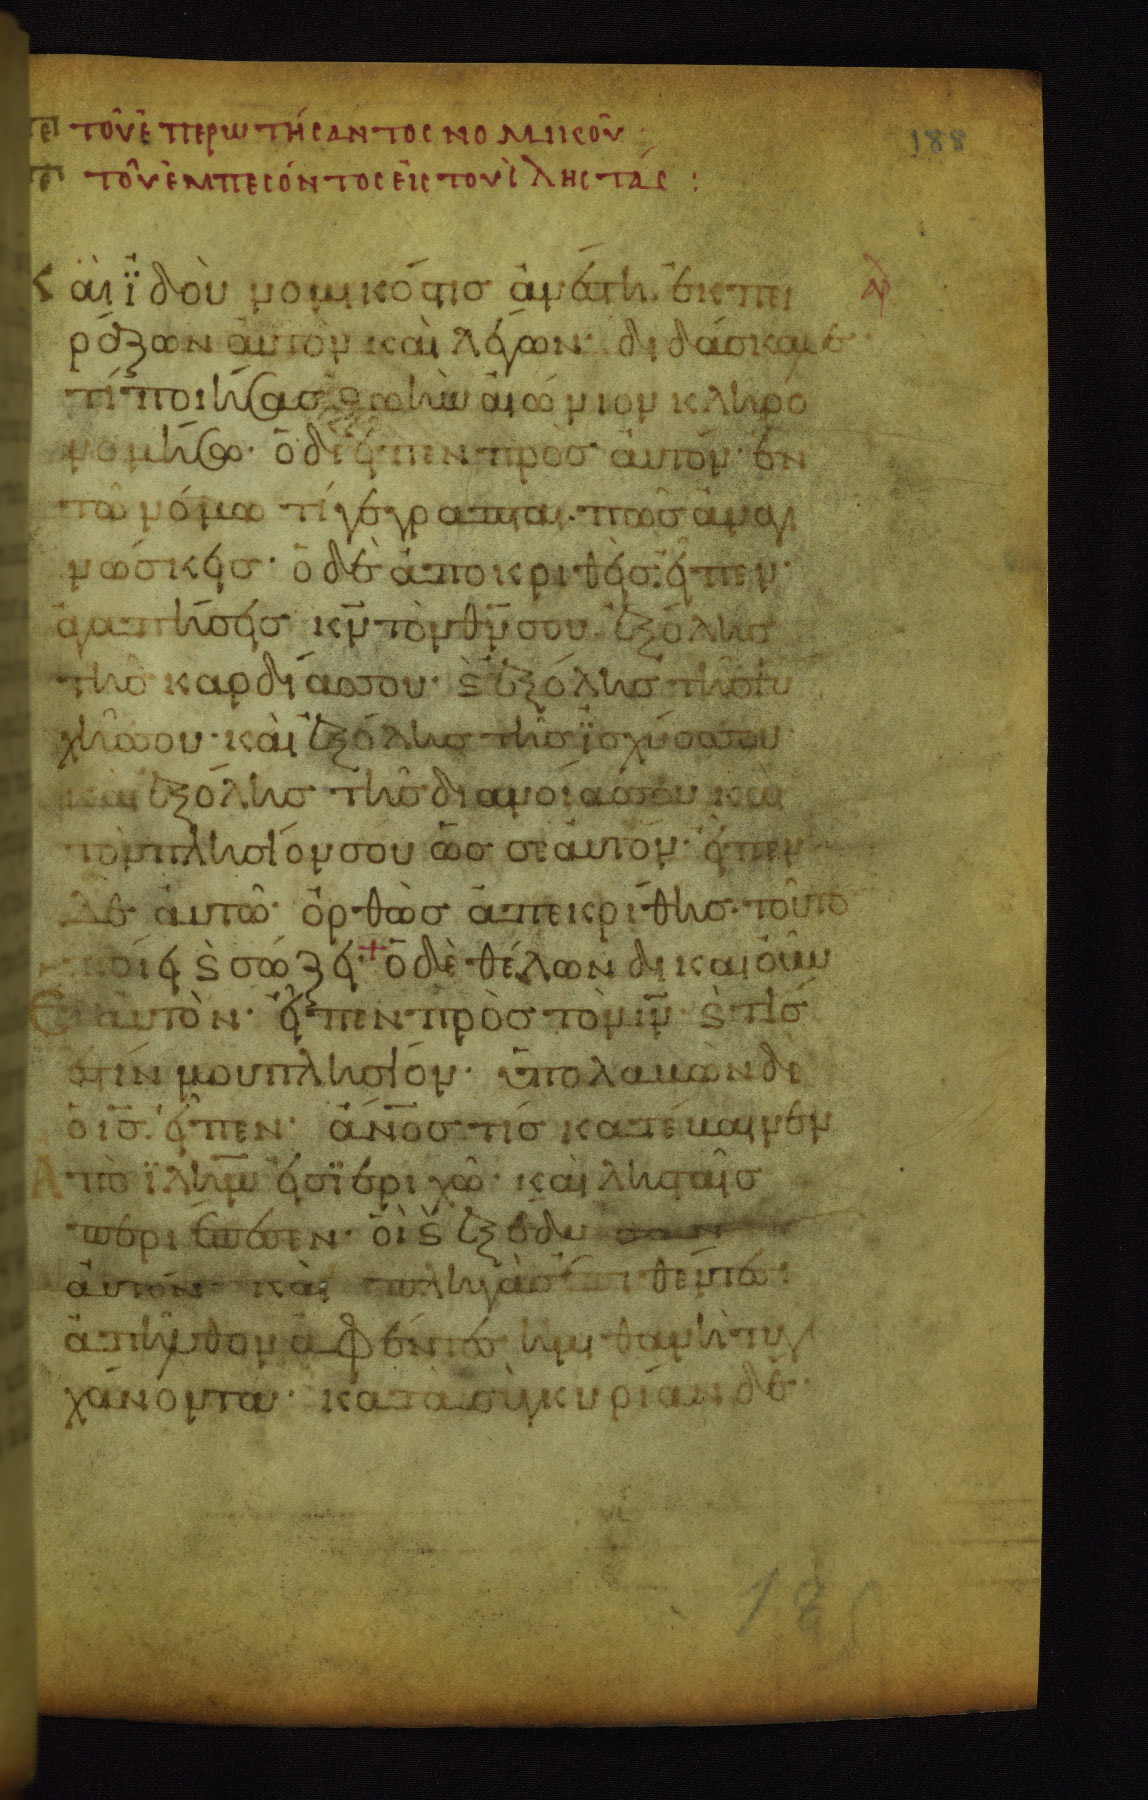 πε τοῦ ἐπερωτήσαντος νομικοῦ :
πϛ τοῦ ἐμπεσόντος εἰς τοὺς λῃστάς :
188
Καὶ ἰδοὺ νομικός τις ἀνέστη ἐκπει
ράζων αὐτὸν καὶ λέγων· διδάσκαλε
τί ποιήσας ζωὴν αἰώνιον κληρο
νομήσω· ὁ δὲ εἶπεν πρὸς αὐτόν· ἐν
τῶ νόμω τί γέγραπται· πῶς ἀναγι
νώσκεις· ὁ δὲ ἀποκριθεὶς εἶπεν·
ἀγαπήσεις κν̄ τὸν θν̄ σου ἐξ ὅλης
τῆς καρδίας σου· ϗ ἐξ ὅλης τῆς ψυ
χῆς σου· καὶ ἐξ ὅλης τῆς ἰσχύος σου
καὶ ἐξ ὅλης τῆς διανοίας σου καὶ
τὸν πλησίον σου ὡς σεαυτόν· εἶπεν
δὲ αὐτῶ· ὀρθῶς ἀπεκρίθης· τοῦτο
ποίει ϗ σώζει· + ὁ δὲ θέλων δικαιοῦν
Ἑαυτὸν· εἶπεν πρὸς τὸν ιν̄ ϗ τίς
ἐστίν μου πλησίον· ὑπολαβὼν δὲ
ὁ ις̄ εἶπεν· ἄνο̄ς τις κατέβαινεν
Ἀπὸ ιλη̄μ εἰς ἱεριχῶ· καὶ λησταῖς
περιέπεσεν· οἳ ϗ ἐξέδυσαν
αὐτόν καὶ πληγὰς ἐπιθέντες
ἀπῆλθον ἀφέντες ἡμιθανῆ τυγ
χάνοντα· κατὰ συγκυρίαν δὲ
185